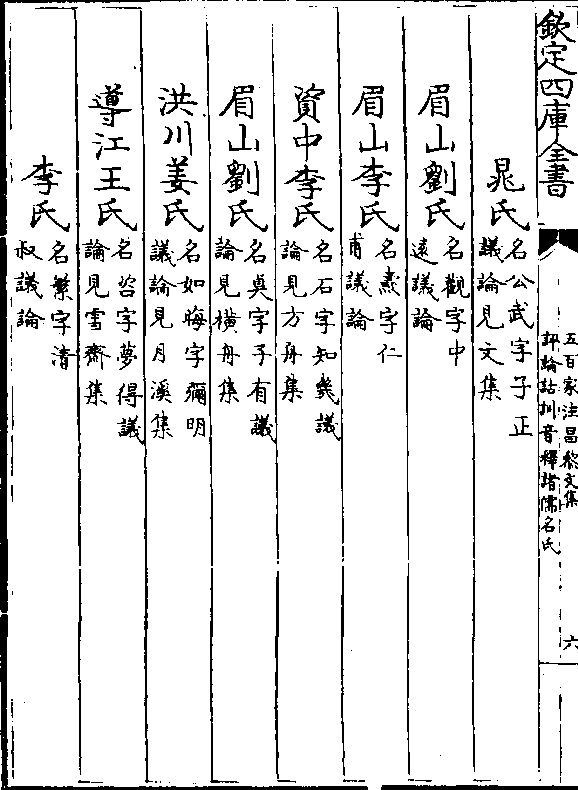 欽定四庫全書
五百家注昌黎文集
評論詁訓音釋諸儒名氏
六
晁氏
名公武字子正
議論見文集
眉山劉氏
名觀字中
遠議論
眉山李氏
名燾字仁
甫議論
資中李氏
名石字知幾議
論見方舟集
眉山劉氏
名奭字子有議
論見橫舟集
洪川姜氏
名如晦字彌明
議論見月溪集
導江王氏
名咨字夢得議
論見雪齋集
李氏
名蘩字清
叔議論